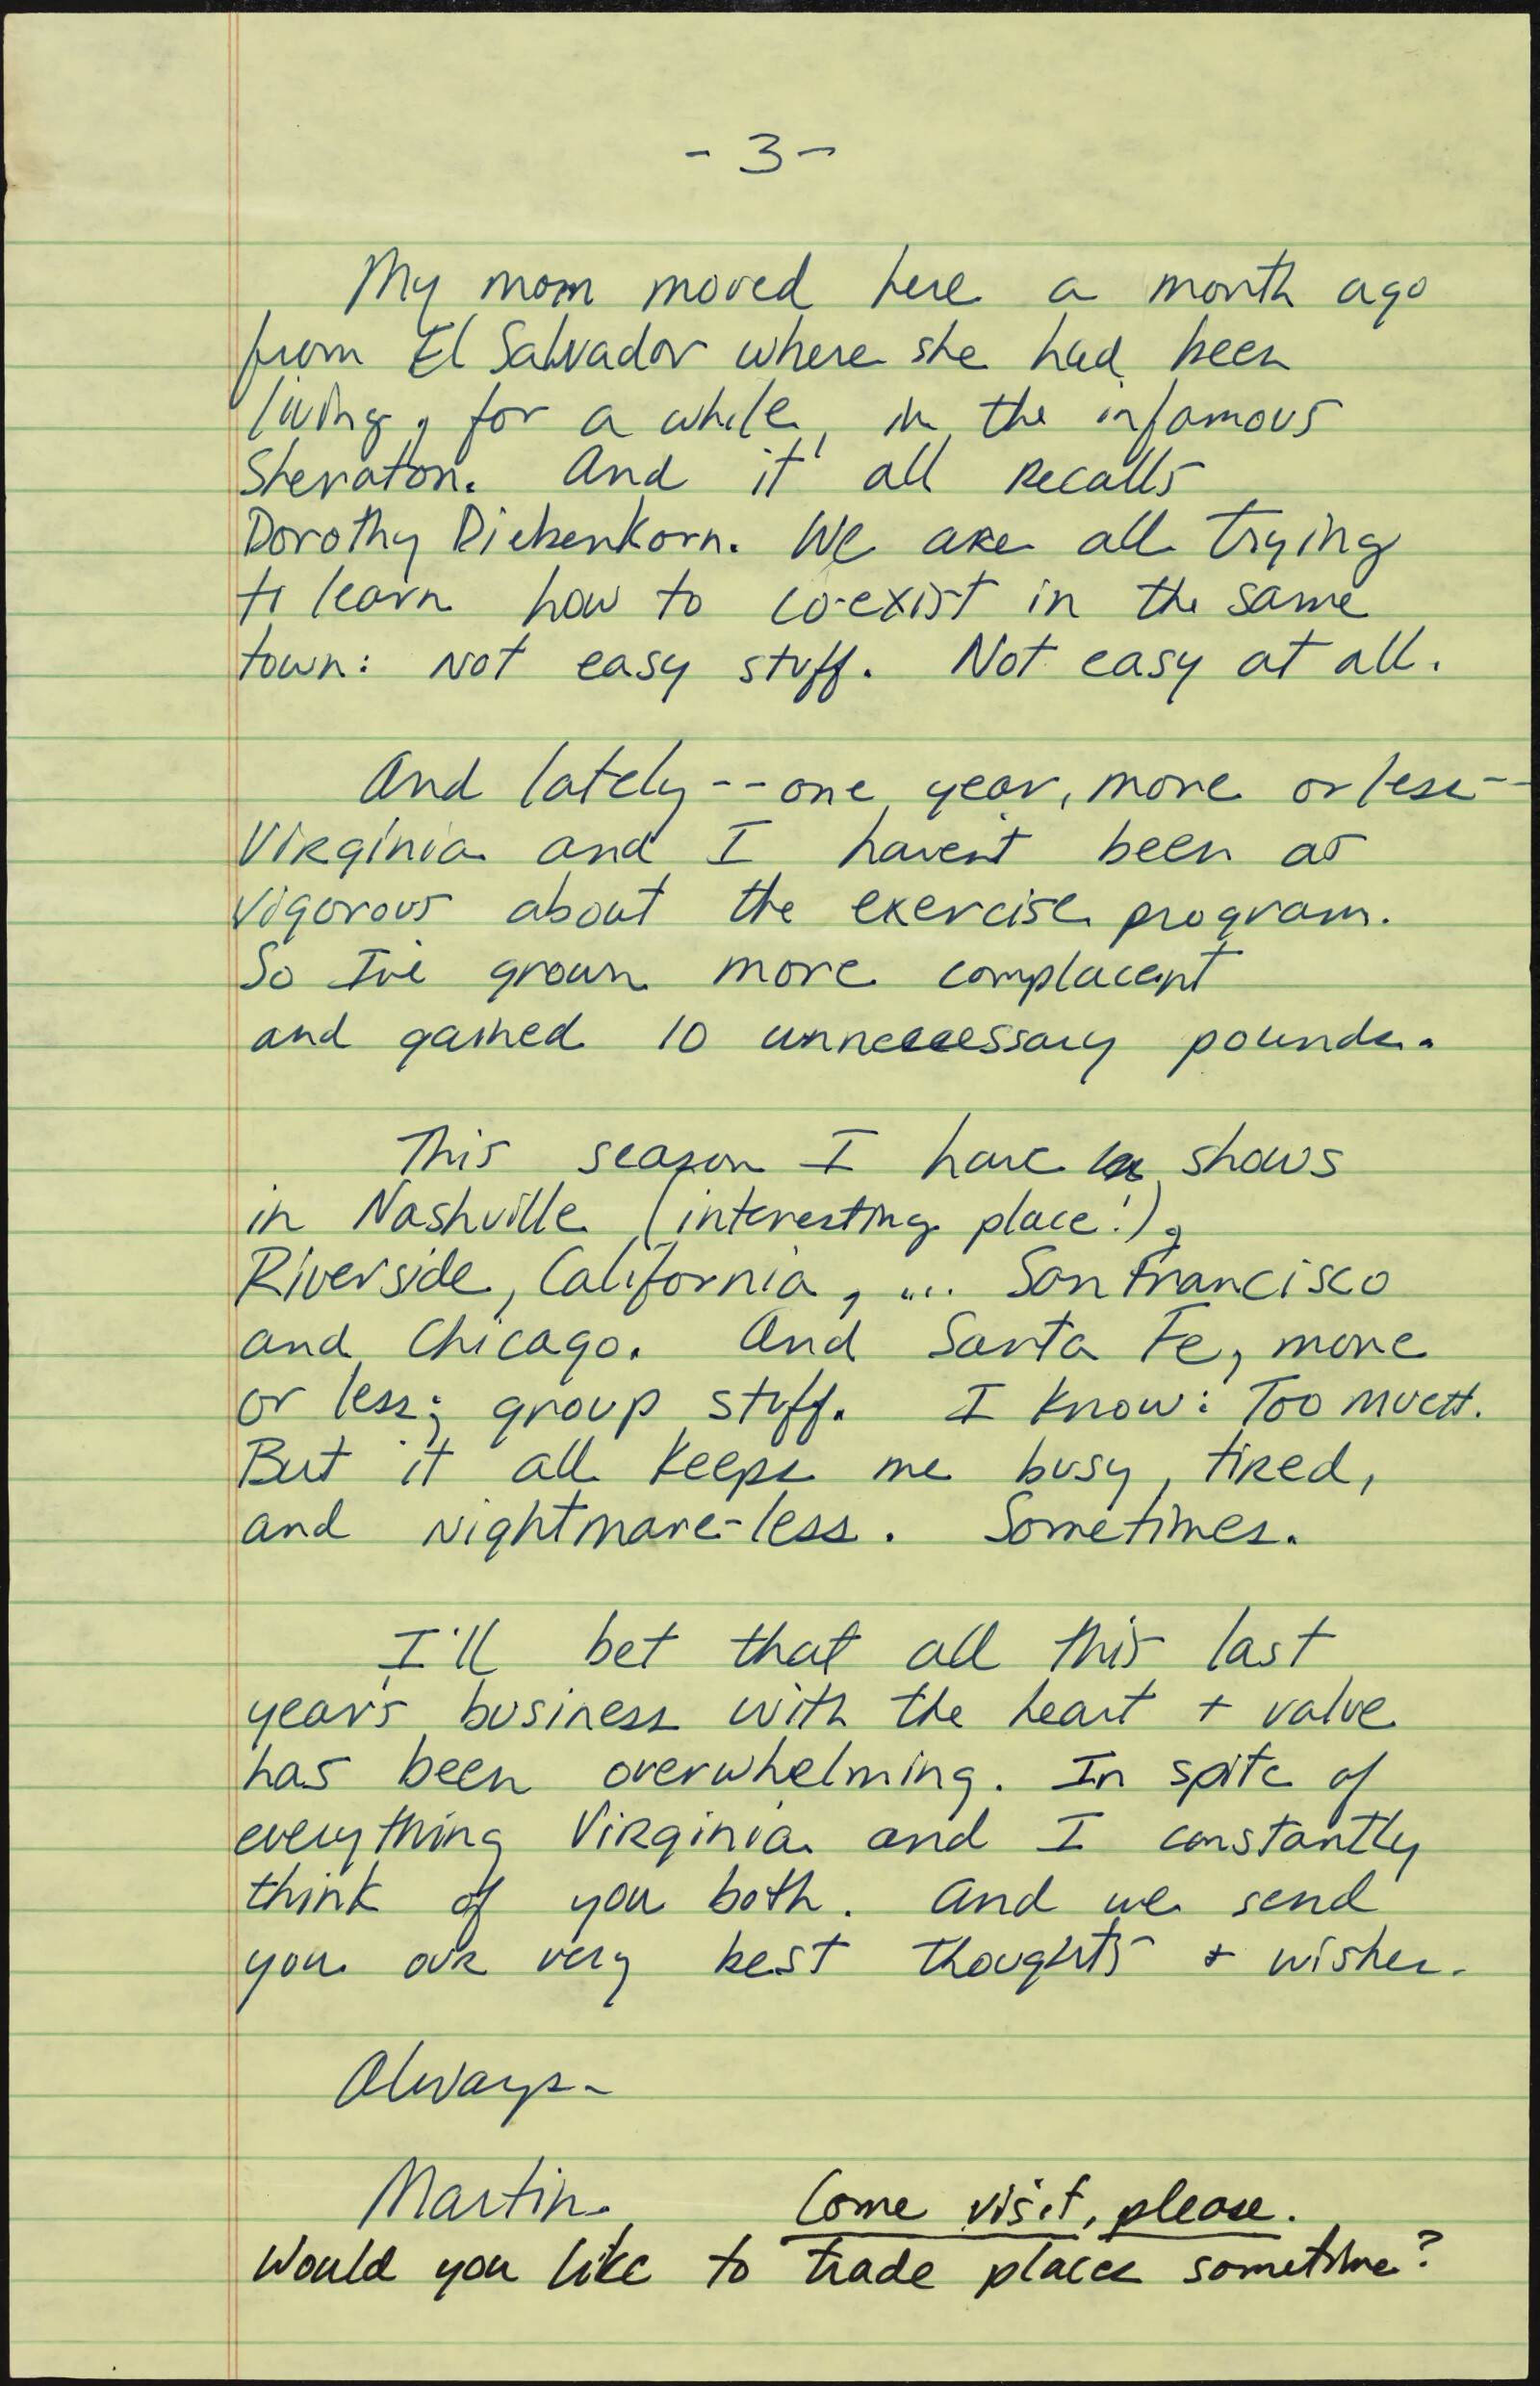 - 3 -
My mom moved here a month ago
from El Salvador where she had been
living, for a while, in the infamous
Sheraton. And it all recalls
Dorothy Diebenkorn. We are all trying
to learn how to co-exist in the same
town: not easy stuff. Not easy at all.
And lately -- one year, more or less --
Virginia and I haven't been as
vigorous about the exercise program.
So I've grown more complacent
and gained 10 unnecessary pounds.
This season I have shows
in Nashville (interesting place!),
Riverside, California, ... San Francisco
and Chicago. And Santa Fe, more
or less; group stuff. I know: Too much.
But it all keeps me busy, tired,
and nightmare-less. Sometimes.
I'll bet that all this last
year's business with the heart + valve
has been overwhelming. In spite of
everything Virginia and I constantly
think of you both. And we send
you our very best thoughts + wishes.
Always -
Martin.
Come visit, please.
Would you like to trade places sometime?